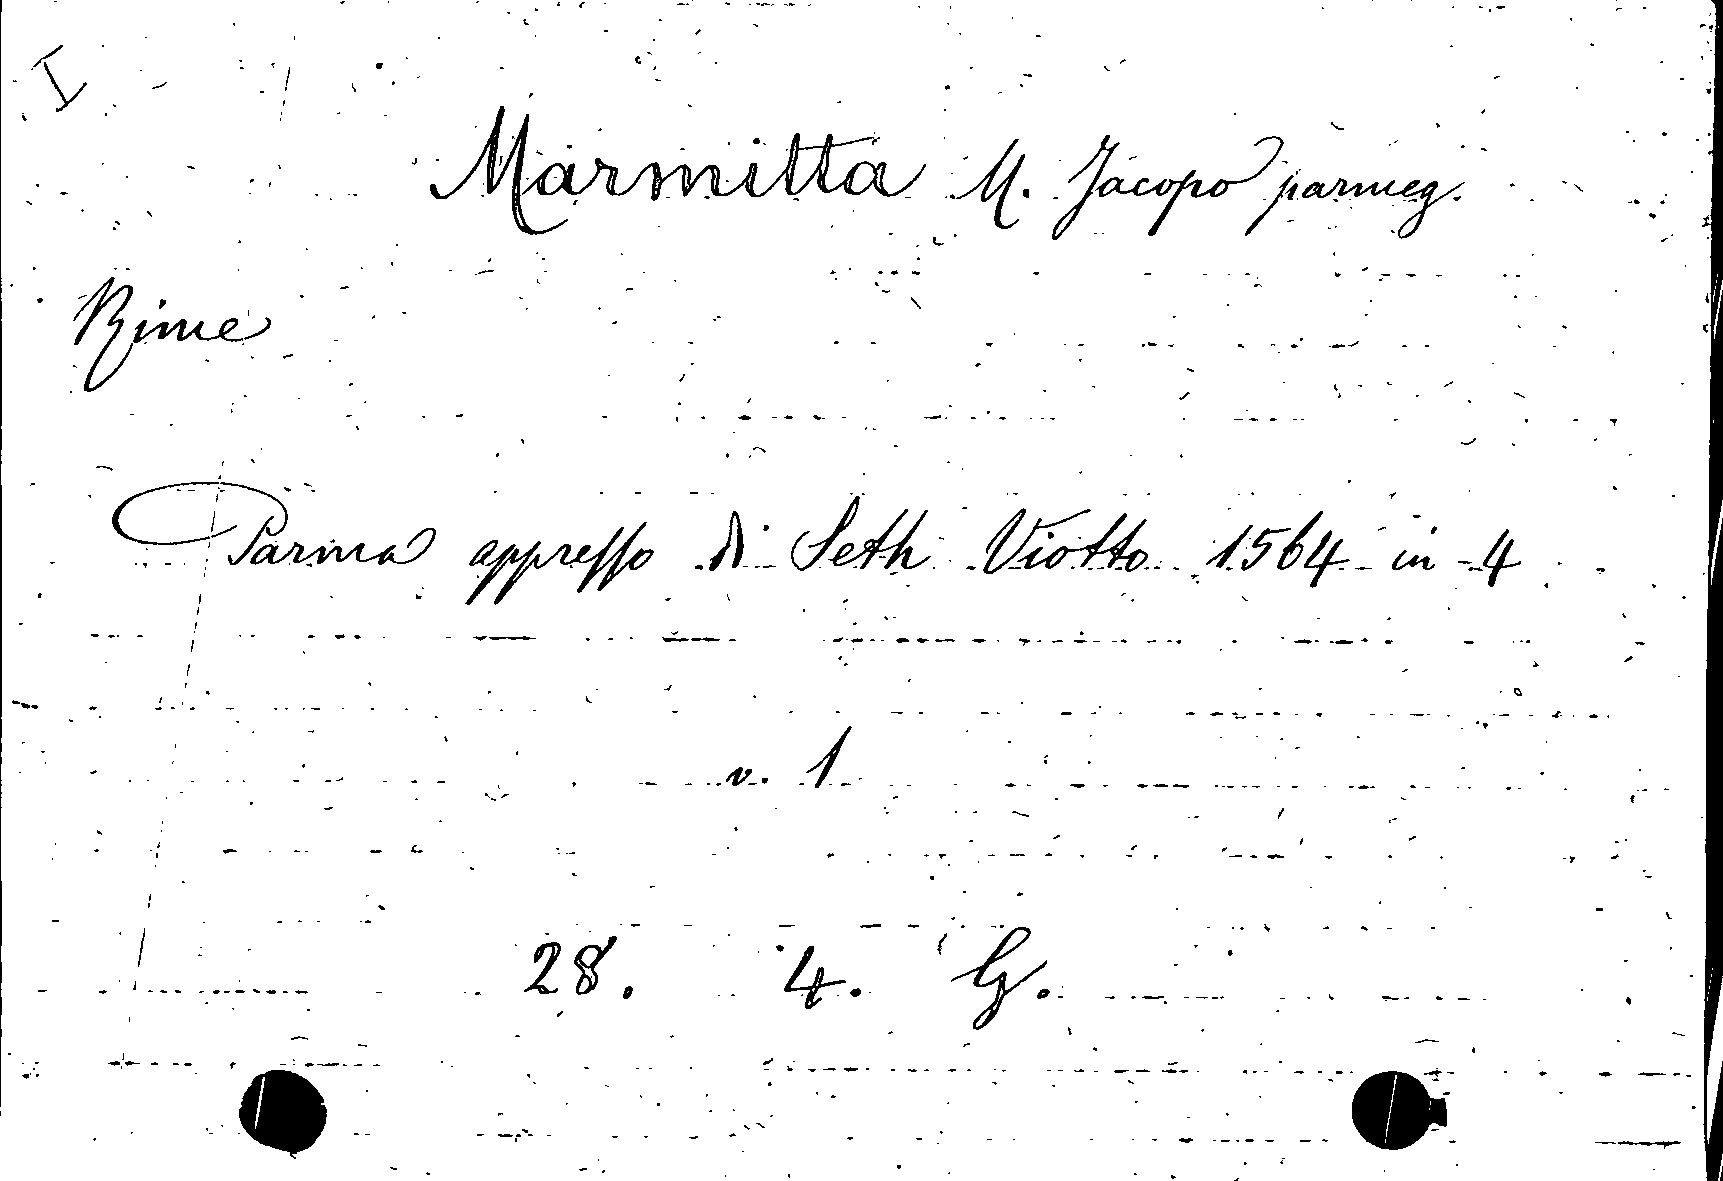 I
Marmitta M. Jacopo parmeg.
Rime
Parma appresso di Seth Viotto 1564 in 4
v. 1
28. 4. G.